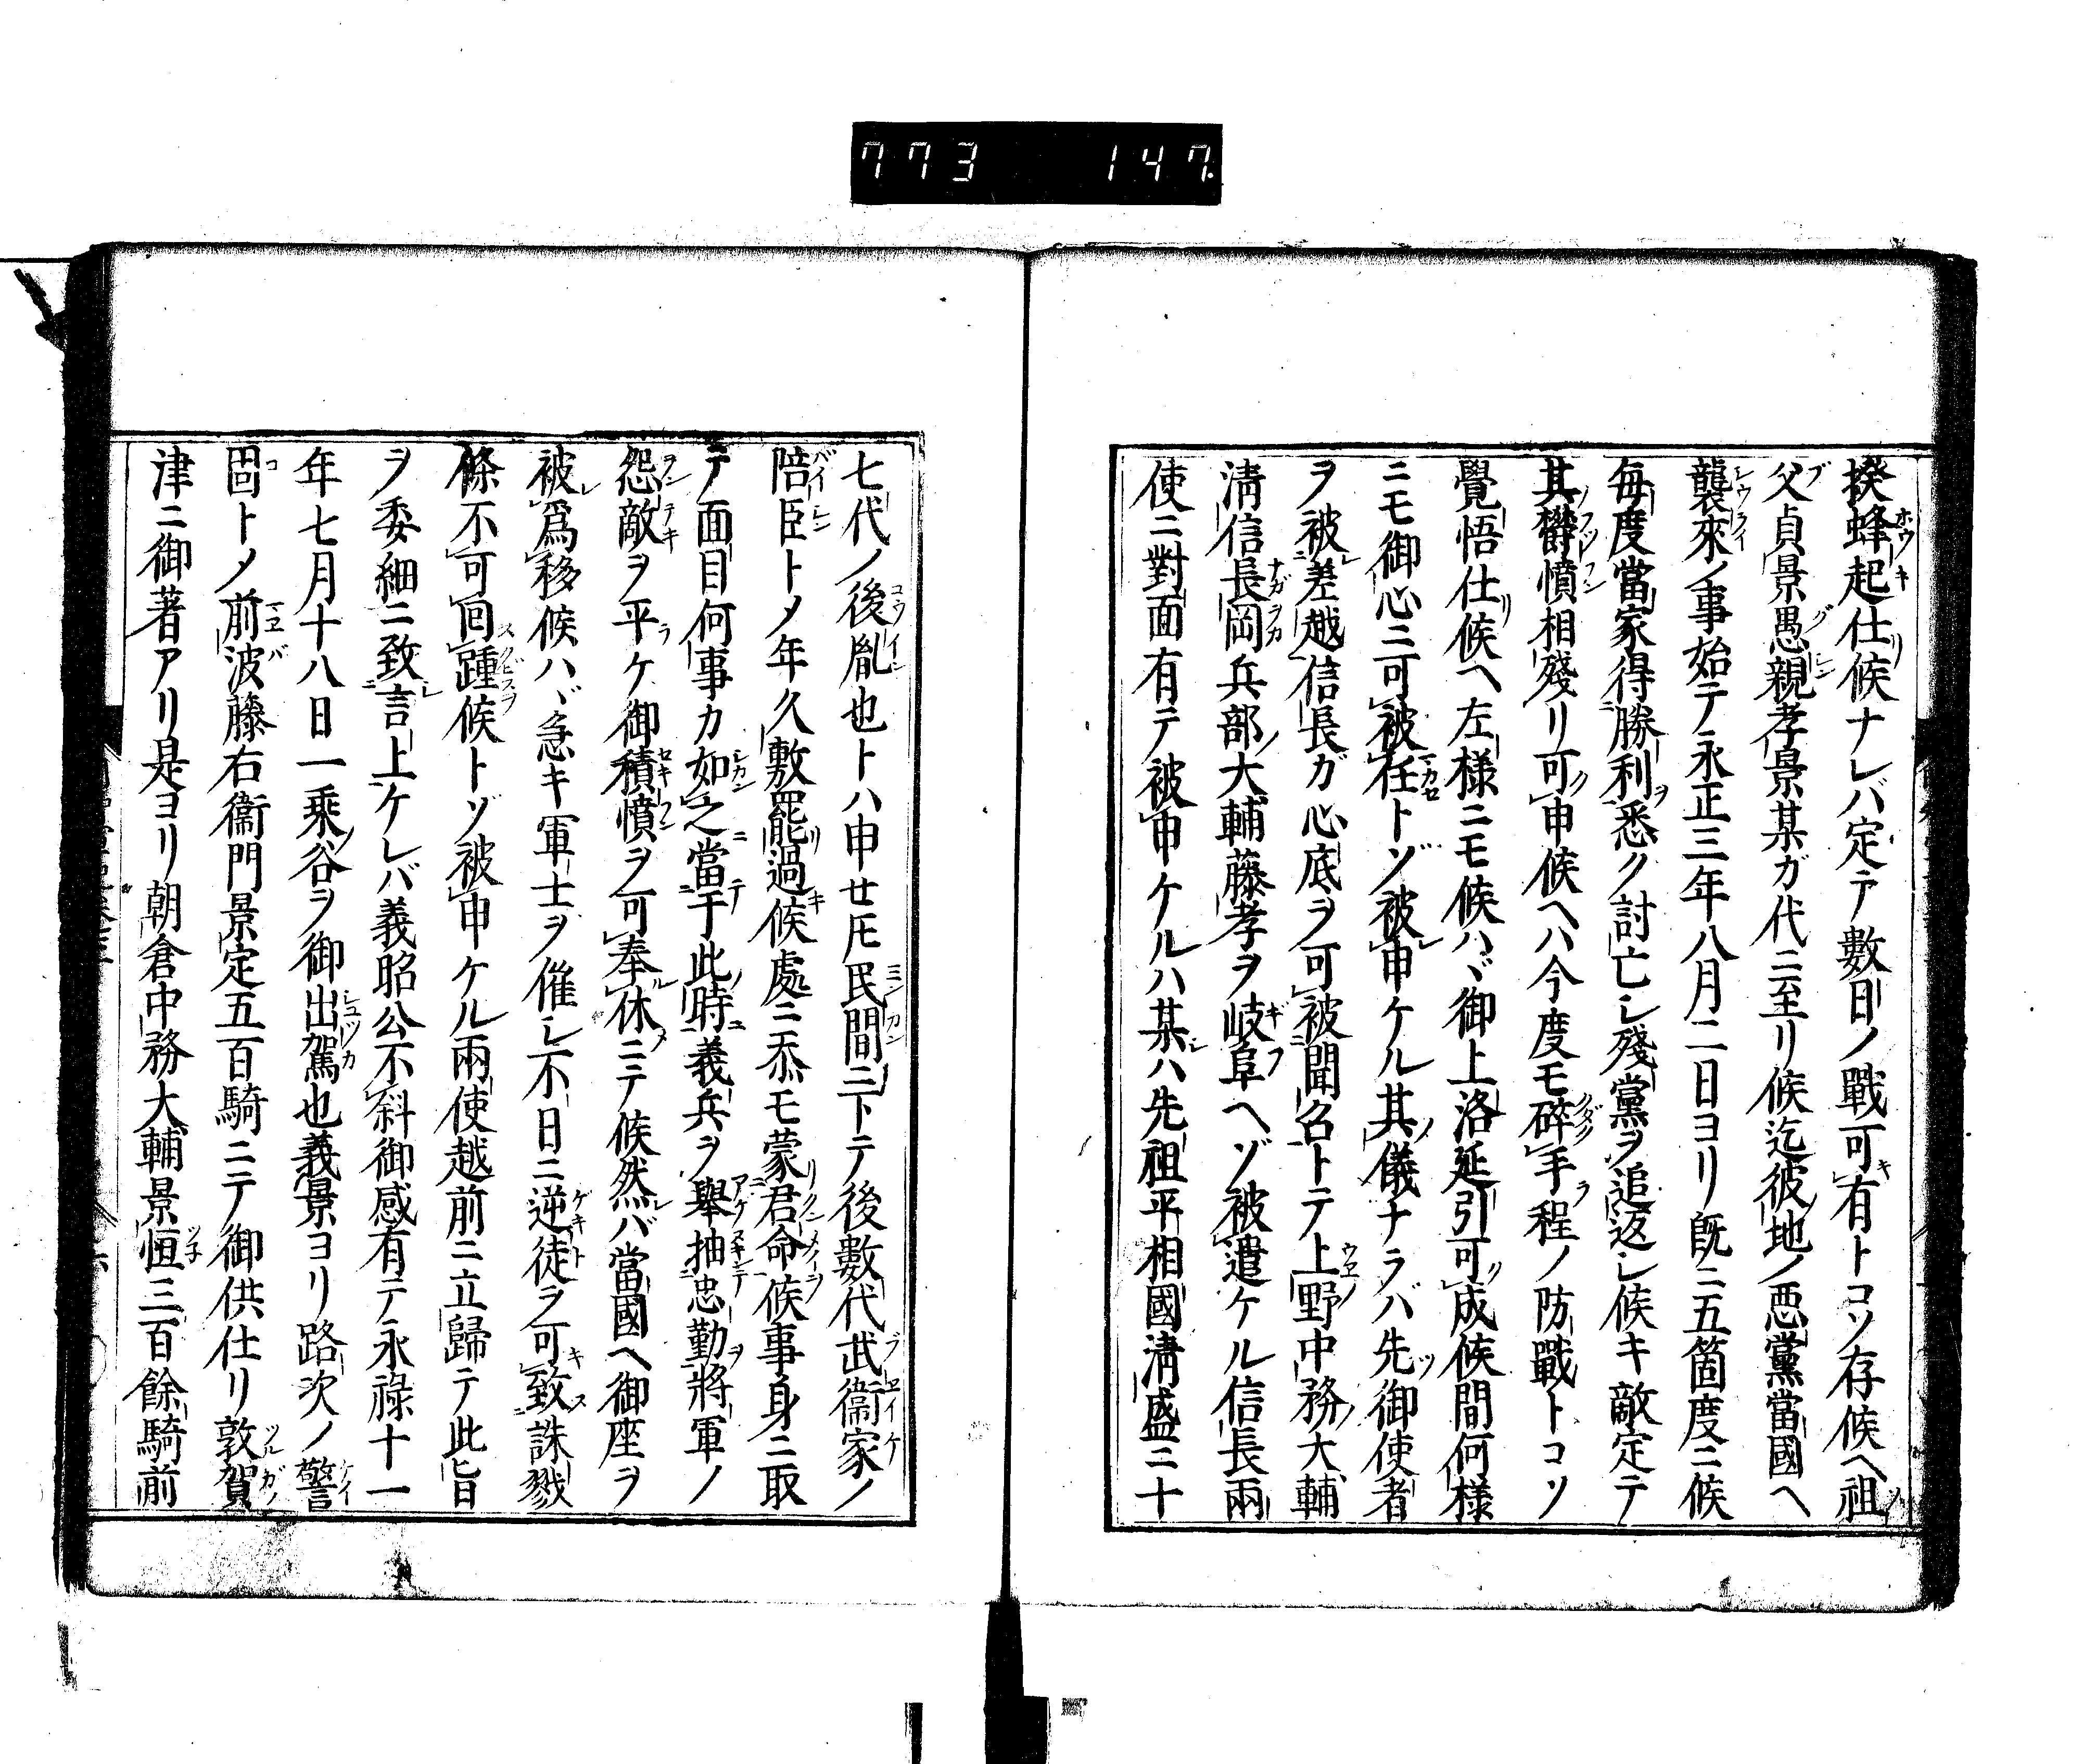 773 147
揆蜂起仕候ナレバ定テ數日ノ戰可有トコソ存候ヘ祖
父貞景愚親孝景某ガ代ニ至リ候迄彼地ノ惡黨當國ヘ
襲來ノ事始テ永正三年八月二日ヨリ既ニ五箇度ニ候
每度當家得勝利悉ク討亡シ殘黨ヲ追返シ候キ敵定テ
其欝憤相殘リ可申候ヘハ今度モ碎手程ノ防戰トコソ
覺悟仕候ヘ左樣ニモ候ハヾ御上洛延引可成候間何樣
ニモ御心ニ可被任トゾ被申ケル其儀ナラバ先御使者
ヲ被差越信長ガ心底ヲ可被聞召トテ上野中務大輔
淸信長岡兵部大輔藤孝ヲ岐阜ヘゾ被遣ケル信長兩
使ニ對面有テ被申ケルハ某ハ先祖平相國淸盛ニ十
七代ノ後胤也トハ申セ𪜈民間ニ下テ後數代武衞家ノ
陪臣トメ年久敷罷過候處ニ忝モ蒙君命候事身ニ取
テ面目何事カ如之當于此時義兵ヲ擧抽忠勤將軍ノ
怨敵ヲ平ケ御積憤ヲ可奉休ニテ候然バ當國ヘ御座ヲ
被爲移候ハヾ急キ軍士ヲ催シ不日ニ逆徒ヲ可致誅戮
條不可回踵候トゾ被申ケル兩使越前ニ立歸テ此旨
ヲ委細ニ致言上ケレバ義昭公不斜御感有テ永祿十一
年七月十八日一乘谷ヲ御出駕也義景ヨリ路次ノ警
固トメ前波藤右衞門景定五百騎ニテ御供仕リ敦賀
津ニ御著アリ是ヨリ朝倉中務大輔景恒三百餘騎前